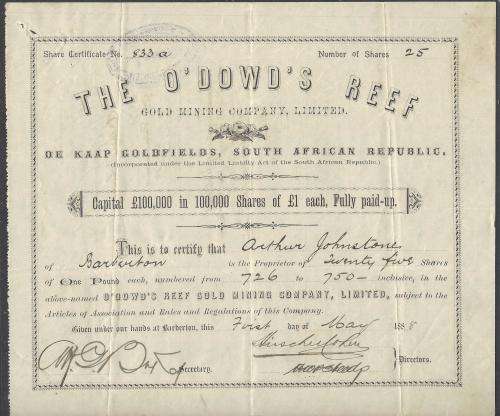 Share Certificate No. 833a Number of Shares 25
THE O'DOWD'S REEF
GOLD MINING COMPANY, LIMITED.
DE KAAP GOLDFIELDS, SOUTH AFRICAN REPUBLIC.
(Incorporated under the Limited Liability Act of the South African Republic.)
Capital £100,000 in 100,000 Shares of £1 each, Fully paid-up.
This is to certify that Arthur Johnstone
of Barberton is the Proprietor of Twenty five Shares
of One Pound each, numbered from 726 to 750 - inclusive, in the
above-named O'DOWD'S REEF GOLD MINING COMPANY, LIMITED, subject to the
Articles of Association and Rules and Regulations of this Company.
Given under our hands at Barberton, this First day of May 1888
Secretary.
Directors.